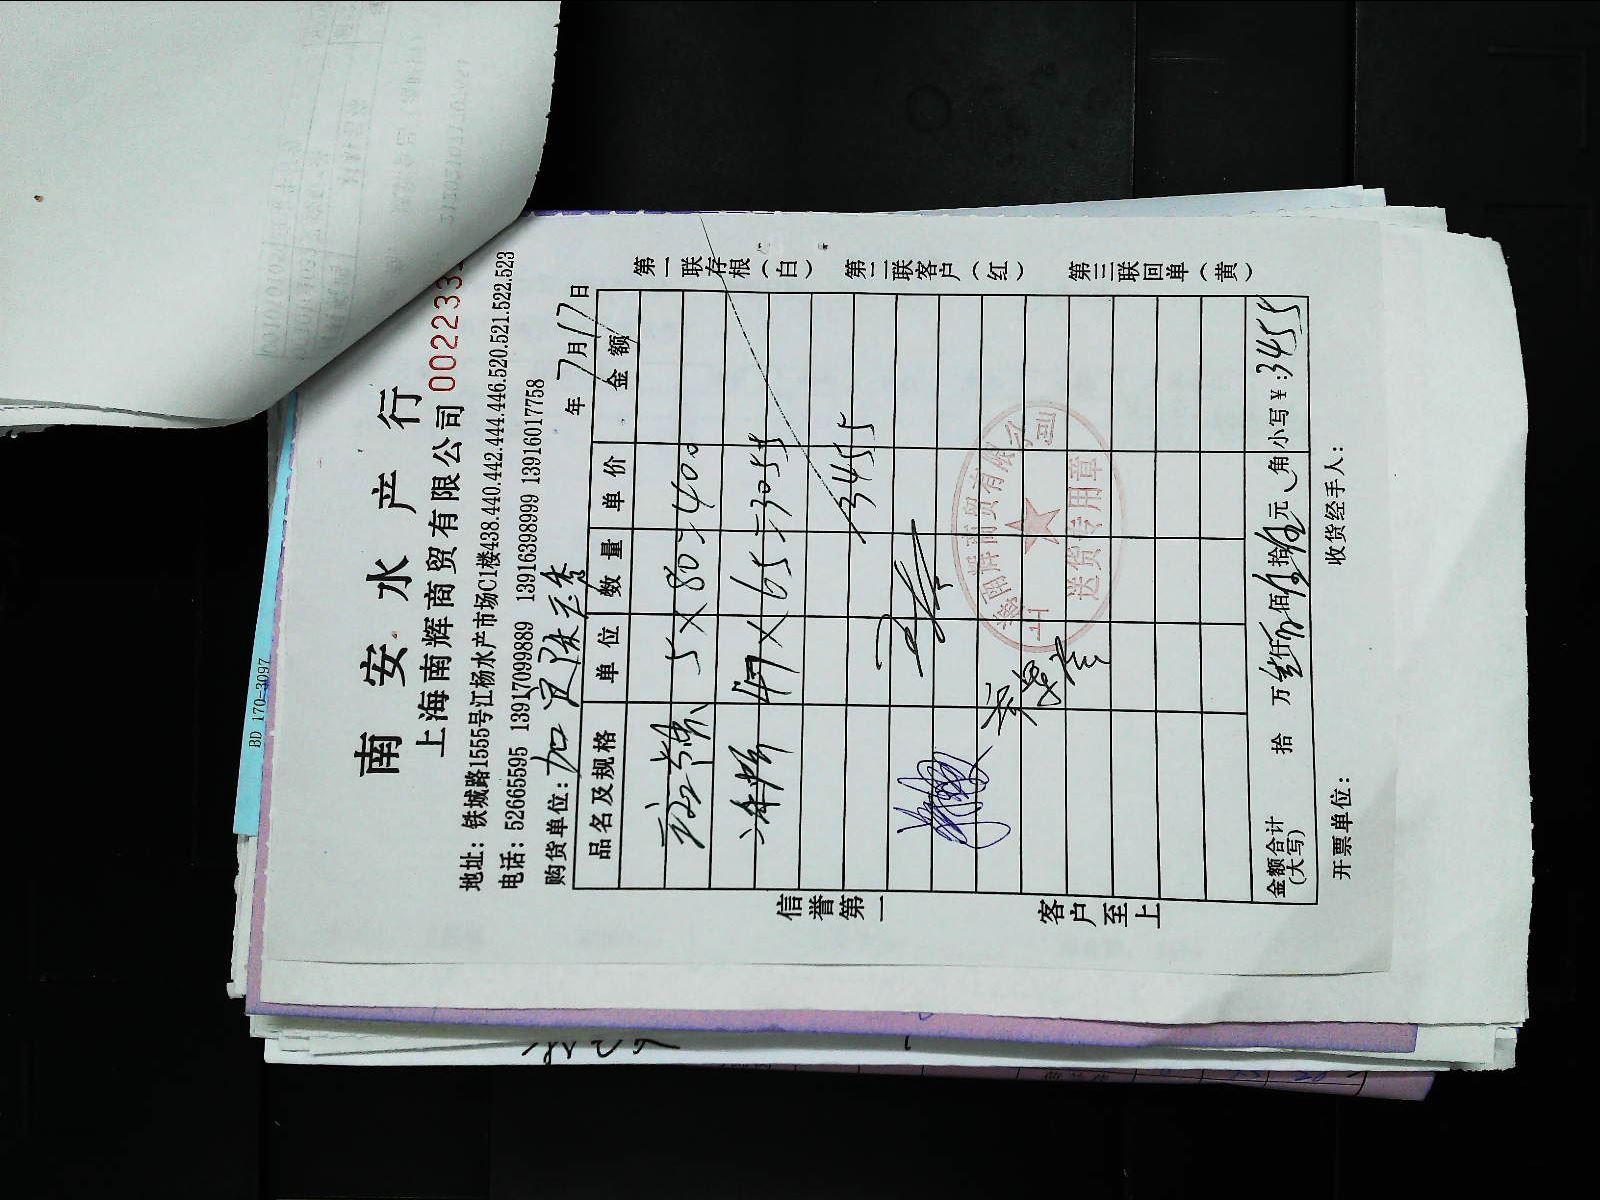 南安水产行
上海南辉商贸有限公司 002233
地址：铁城路1555号江杨水产市场C1楼438.440.442.444.446.520.521.522.523
电话：52665595 13917099889 13916398999 13916017758
购货单位：加 年7月17日
品名及规格 单位 数量 单价 金额
5×80=400
47×65=3055
3455
金额合计（大写） 拾 万叁仟肆佰伍拾伍元 角 小写¥：3455
开票单位： 收货经手人：
信誉第一
客户至上
第一联存根（白）
第二联客户（红）
第三联回单（黄）
上海南辉商贸有限公司
送货专用章
BD 170-3097